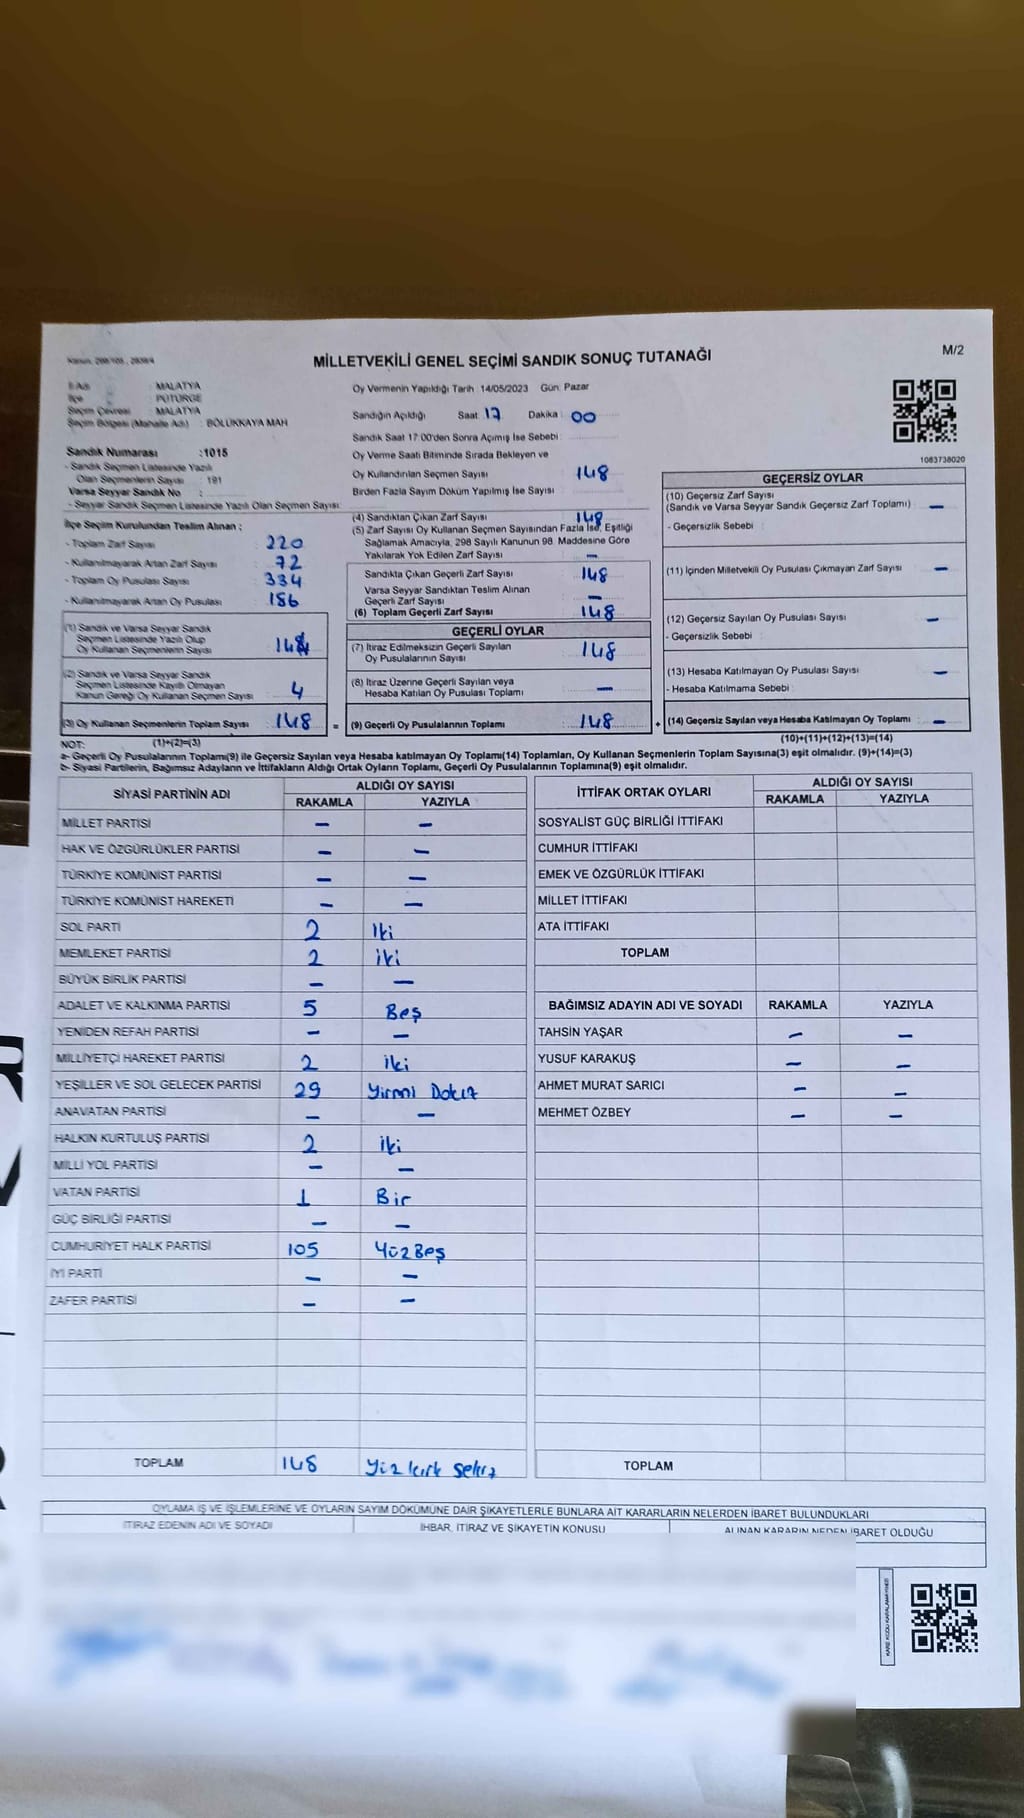 Kanun, 298/105, 2839/4
MİLLETVEKİLİ GENEL SEÇİMİ SANDIK SONUÇ TUTANAĞI
M/2
İl Adı : MALATYA
İlçe : PÜTÜRGE
Seçim Çevresi : MALATYA
Seçim Bölgesi (Mahalle Adı) : BÖLÜKKAYA MAH
Sandık Numarası :1015
- Sandık Seçmen Listesinde Yazılı
Olan Seçmenlerin Sayısı : 191
Varsa Seyyar Sandık No :
- Seyyar Sandık Seçmen Listesinde Yazılı Olan Seçmen Sayısı:
İlçe Seçim Kurulundan Teslim Alınan ;
- Toplam Zarf Sayısı 220
- Kullanılmayarak Artan Zarf Sayısı 72
- Toplam Oy Pusulası Sayısı 334
- Kullanılmayarak Artan Oy Pusulası 186
(1) Sandık ve Varsa Seyyar Sandık
Seçmen Listesinde Yazılı Olup
Oy Kullanan Seçmenlerin Sayısı 144
(2) Sandık ve Varsa Seyyar Sandık
Seçmen Listesinde Kayıtlı Olmayan
Kanun Gereği Oy Kullanan Seçmen Sayısı 4
(3) Oy Kullanan Seçmenlerin Toplam Sayısı 148 =
Oy Vermenin Yapıldığı Tarih : 14/05/2023 Gün: Pazar
Sandığın Açıldığı Saat : 17 Dakika : 00
Sandık Saat 17:00'den Sonra Açımış İse Sebebi :
Oy Verme Saati Bitiminde Sırada Bekleyen ve
Oy Kullandırılan Seçmen Sayısı 148
Birden Fazla Sayım Döküm Yapılmış İse Sayısı
(4) Sandıktan Çıkan Zarf Sayısı 148
(5) Zarf Sayısı Oy Kullanan Seçmen Sayısından Fazla İse, Eşitliği
Sağlamak Amacıyla, 298 Sayılı Kanunun 98. Maddesine Göre
Yakılarak Yok Edilen Zarf Sayısı —
Sandıkta Çıkan Geçerli Zarf Sayısı 148
Varsa Seyyar Sandıktan Teslim Alınan
Geçerli Zarf Sayısı —
(6) Toplam Geçerli Zarf Sayısı 148
GEÇERLİ OYLAR
(7) İtiraz Edilmeksizin Geçerli Sayılan
Oy Pusulalarının Sayısı 148
(8) İtiraz Üzerine Geçerli Sayılan veya
Hesaba Katılan Oy Pusulası Toplamı —
(9) Geçerli Oy Pusulalarının Toplamı 148 +
1083738020
GEÇERSİZ OYLAR
(10) Geçersiz Zarf Sayısı
(Sandık ve Varsa Seyyar Sandık Geçersiz Zarf Toplamı) —
- Geçersizlik Sebebi :
(11) İçinden Milletvekili Oy Pusulası Çıkmayan Zarf Sayısı —
(12) Geçersiz Sayılan Oy Pusulası Sayısı —
- Geçersizlik Sebebi :
(13) Hesaba Katılmayan Oy Pusulası Sayısı —
- Hesaba Katılmama Sebebi :
(14) Geçersiz Sayılan veya Hesaba Katılmayan Oy Toplamı —
NOT: (1)+(2)=(3) (10)+(11)+(12)+(13)=(14)
a- Geçerli Oy Pusulalarının Toplamı(9) ile Geçersiz Sayılan veya Hesaba katılmayan Oy Toplamı(14) Toplamları, Oy Kullanan Seçmenlerin Toplam Sayısına(3) eşit olmalıdır. (9)+(14)=(3)
b- Siyasi Partilerin, Bağımsız Adayların ve İttifakların Aldığı Ortak Oyların Toplamı, Geçerli Oy Pusulalarının Toplamına(9) eşit olmalıdır.
SİYASİ PARTİNİN ADI ALDIĞI OY SAYISI
RAKAMLA YAZIYLA
MİLLET PARTİSİ — —
HAK VE ÖZGÜRLÜKLER PARTİSİ — —
TÜRKİYE KOMÜNİST PARTİSİ — —
TÜRKİYE KOMÜNİST HAREKETİ — —
SOL PARTİ 2 İki
MEMLEKET PARTİSİ 2 iki
BÜYÜK BİRLİK PARTİSİ — —
ADALET VE KALKINMA PARTİSİ 5 Beş
YENİDEN REFAH PARTİSİ — —
MİLLİYETÇİ HAREKET PARTİSİ 2 iki
YEŞİLLER VE SOL GELECEK PARTİSİ 29 Yirmi Dokuz
ANAVATAN PARTİSİ — —
HALKIN KURTULUŞ PARTİSİ 2 iki
MİLLİ YOL PARTİSİ — —
VATAN PARTİSİ 1 Bir
GÜÇ BİRLİĞİ PARTİSİ — —
CUMHURİYET HALK PARTİSİ 105 Yüz Beş
İYİ PARTİ — —
ZAFER PARTİSİ — —
TOPLAM 148 Yüz kırk sekiz
İTTİFAK ORTAK OYLARI ALDIĞI OY SAYISI
RAKAMLA YAZIYLA
SOSYALİST GÜÇ BİRLİĞİ İTTİFAKI
CUMHUR İTTİFAKI
EMEK VE ÖZGÜRLÜK İTTİFAKI
MİLLET İTTİFAKI
ATA İTTİFAKI
TOPLAM
BAĞIMSIZ ADAYIN ADI VE SOYADI RAKAMLA YAZIYLA
TAHSİN YAŞAR — —
YUSUF KARAKUŞ — —
AHMET MURAT SARICI — —
MEHMET ÖZBEY — —
TOPLAM
OYLAMA İŞ VE İŞLEMLERİNE VE OYLARIN SAYIM DÖKÜMÜNE DAİR ŞİKAYETLERLE BUNLARA AİT KARARLARIN NELERDEN İBARET BULUNDUKLARI
İTİRAZ EDENİN ADI VE SOYADI İHBAR, İTİRAZ VE ŞİKAYETİN KONUSU ALINAN KARARIN NEDEN İBARET OLDUĞU
KARE KODU KARALAMAYINIZ!